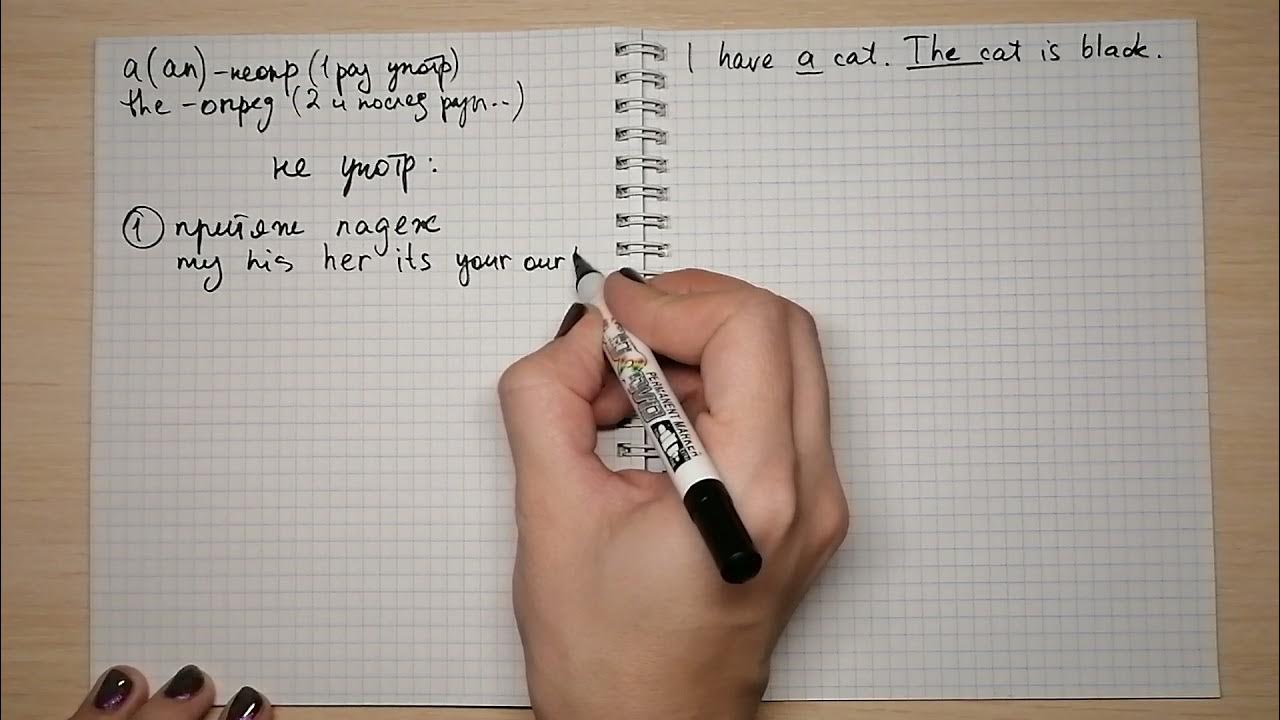 a(an) – неопр (1 раз употр)
the – опред (2 и послед разы..)
не употр:
① притяж падеж
my his her its your our t
I have a cat. The cat is black.
PERMANENT MARKER